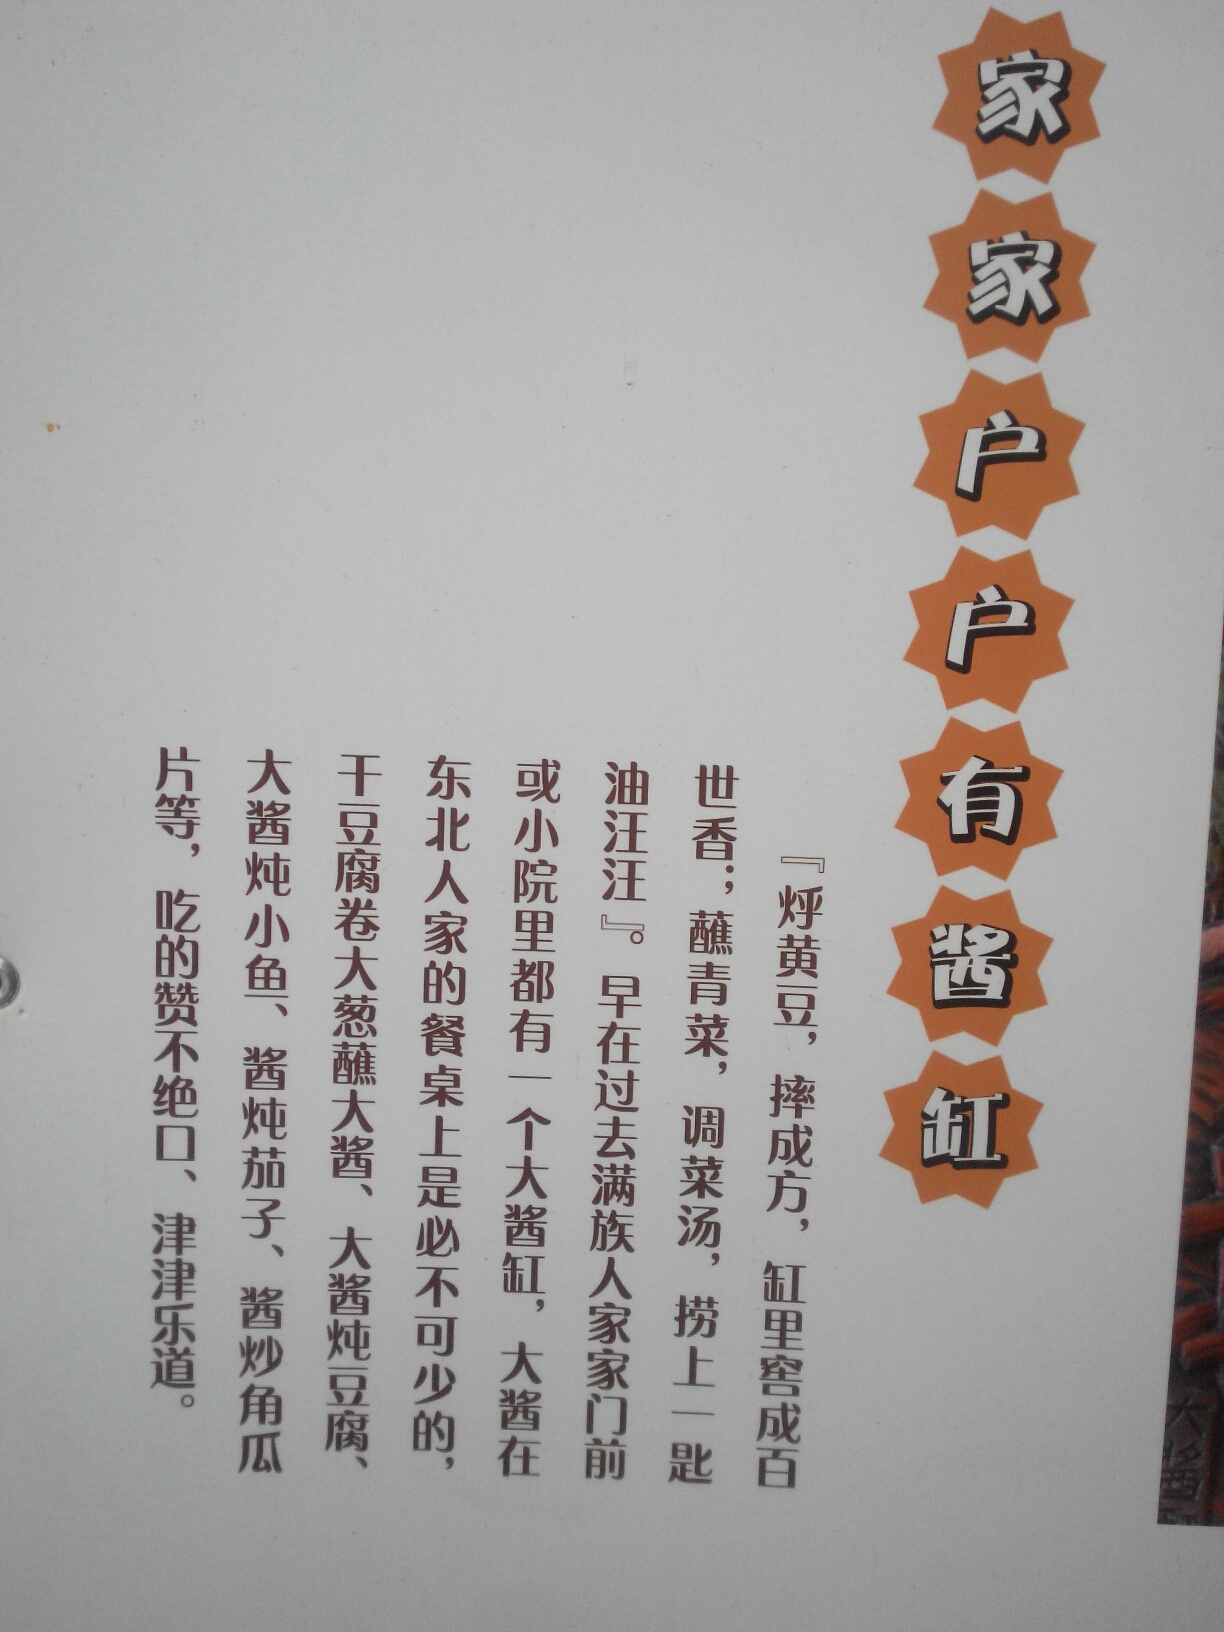 家家户户有酱缸
『烀黄豆，摔成方，缸里窖成百
世香；蘸青菜，调菜汤，捞上一匙
油汪汪』。早在过去满族人家家门前
或小院里都有一个大酱缸，大酱在
东北人家的餐桌上是必不可少的，
干豆腐卷大葱蘸大酱、大酱炖豆腐、
大酱炖小鱼、酱炖茄子、酱炒角瓜
片等，吃的赞不绝口、津津乐道。
大酱